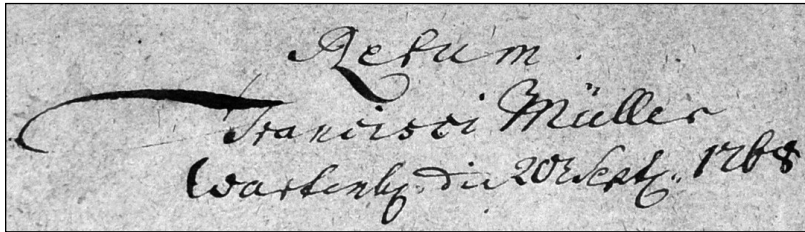 Rerum
Francisci Müller
Wartenb. die 20 Sept. 1768